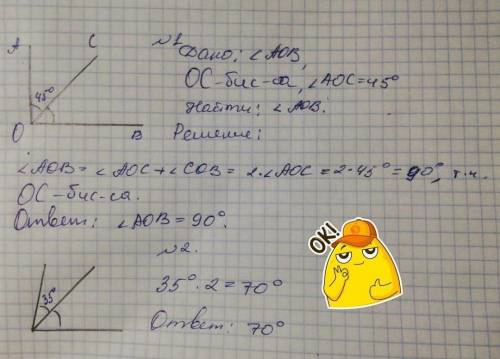 A
C
45°
O
B
№1
Дано: ∠AOB,
OC-бис-са, ∠AOC=45°
Найти: ∠AOB.
Решение:
∠AOB = ∠AOC + ∠COB = 2·∠AOC = 2·45° = 90°, т.ч.
OC-бис-са.
Ответ: ∠AOB = 90°.
OK!
№2.
35°
35°·2 = 70°
Ответ: 70°